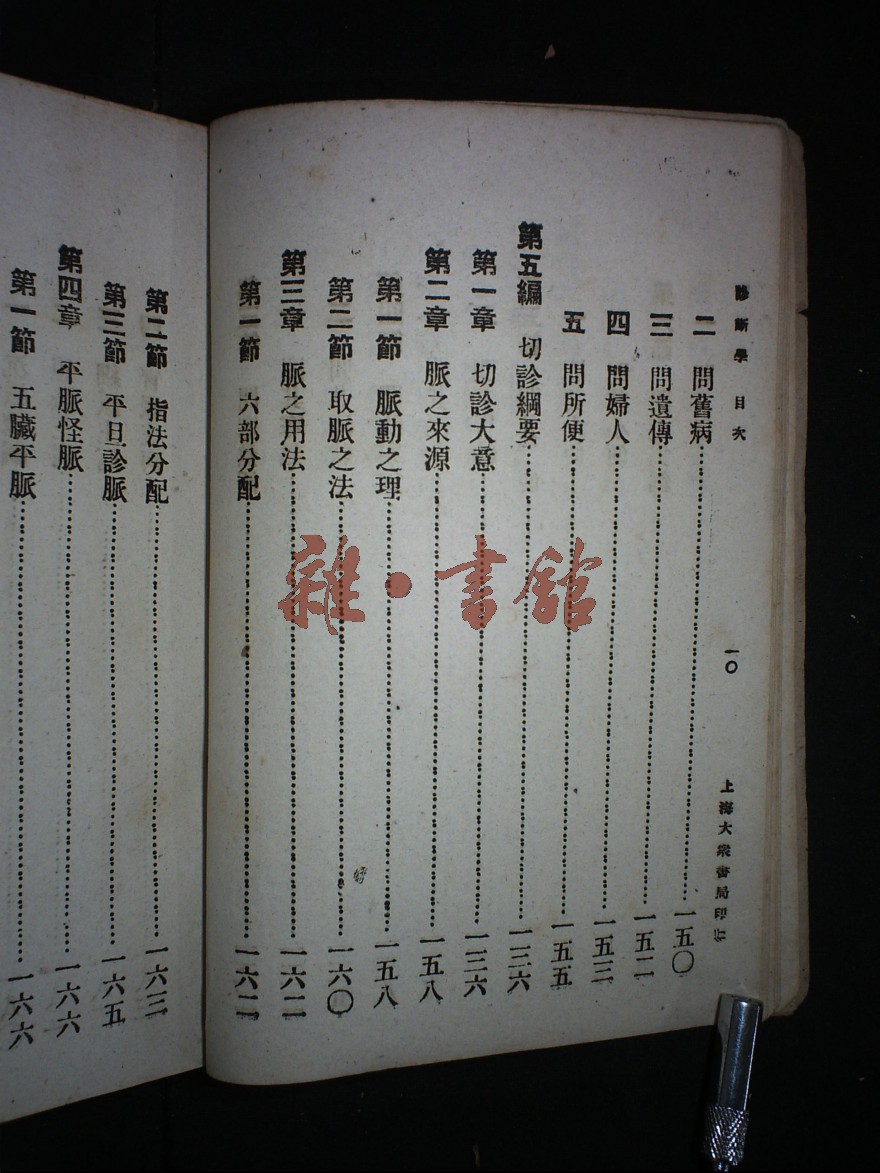 診斷學 目次 一〇 上海大衆書局印行
二 問舊病 一五〇
三 問遺傳 一五二
四 問婦人 一五三
五 問所便 一五五
第五編 切診綱要 一三六
第一章 切診大意 一三六
第二章 脈之來源 一五八
第一節 脈動之理 一五八
第二節 取脈之法 一六〇
第三章 脈之用法 一六二
第一節 六部分配 一六二
第二節 指法分配 一六三
第三節 平旦診脈 一六五
第四章 平脈怪脈 一六六
第一節 五臟平脈 一六六
雜·書館